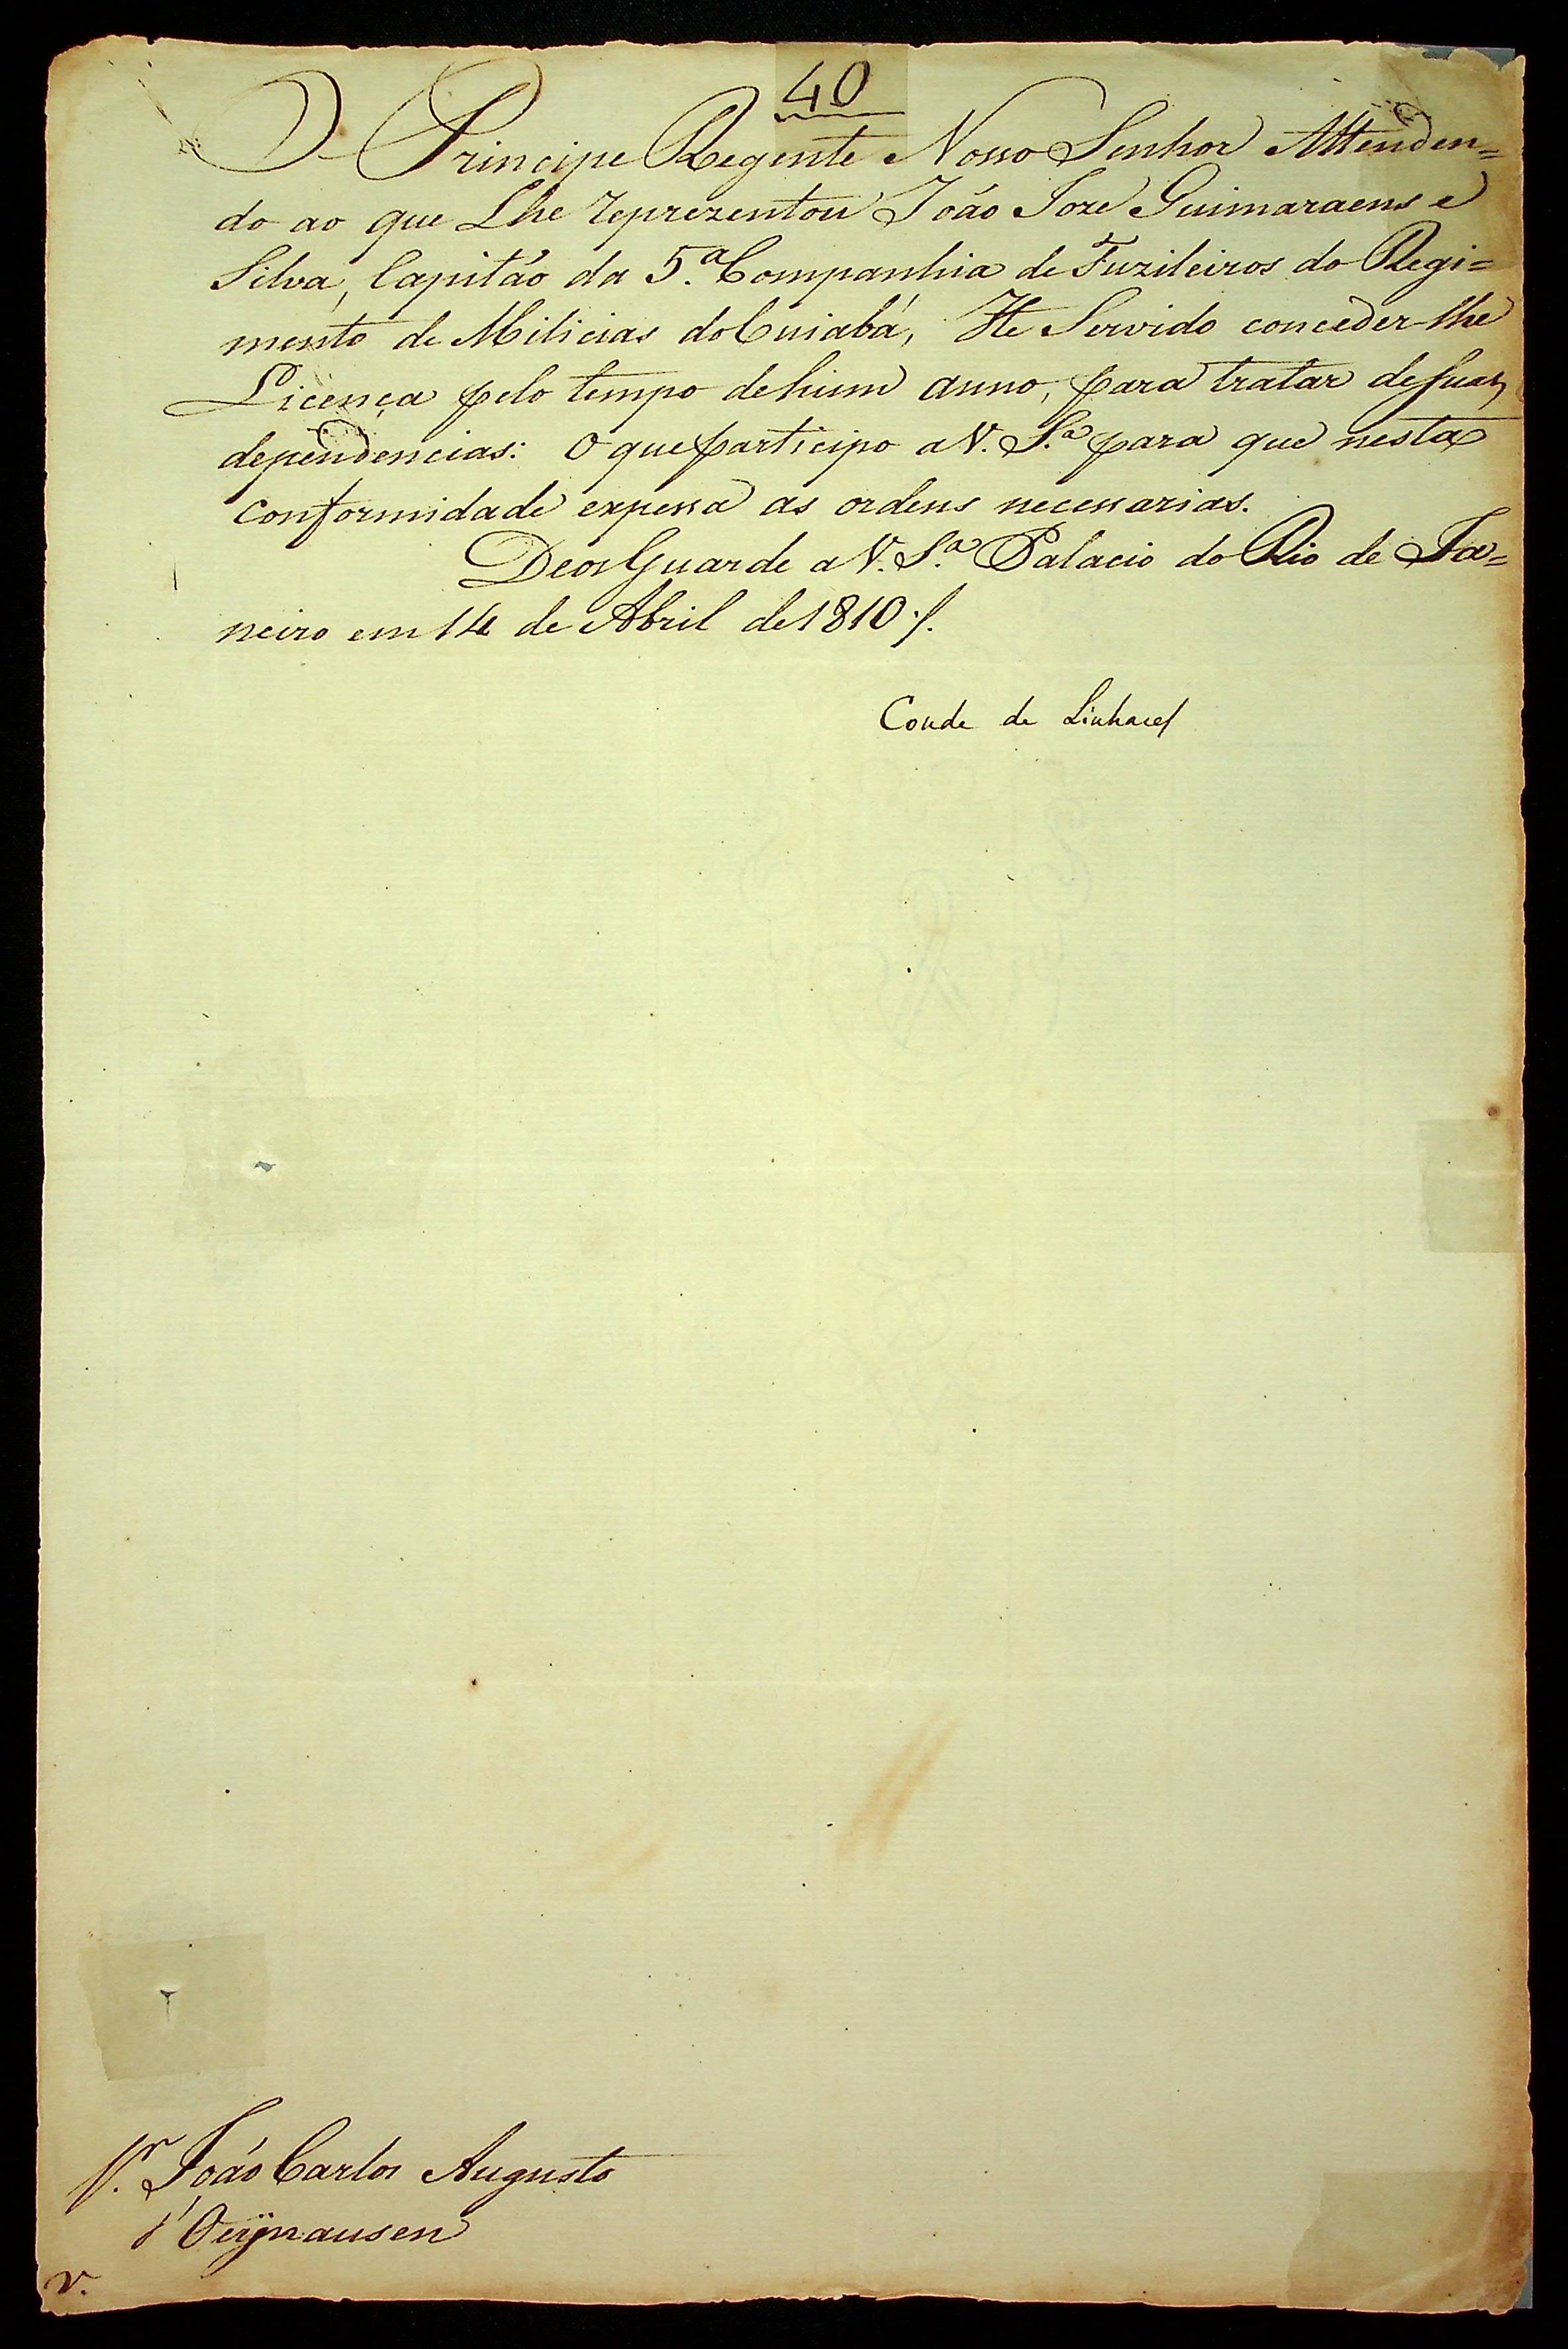 40
O Principe Regente Nosso Senhor Attenden=
do ao que Lhe reprezentou João Joze Guimaraens e
Silva, Capitão da 5.ª Companhia de Fuzileiros do Regi=
mento de Milicias do Cuiabá, He Servido conceder-lhe
Licença pelo tempo de hum anno, para tratar de suas
dependencias: O que participo a V. S.ª para que nesta
conformidade expessa as ordens necessarias.
Deos Guarde a V. S.ª Palacio do Rio de Ja=
neiro em 14 de Abril de 1810 ./.
Conde de Linhares
S.r João Carlos Augusto
d'Oeÿnausen
v.